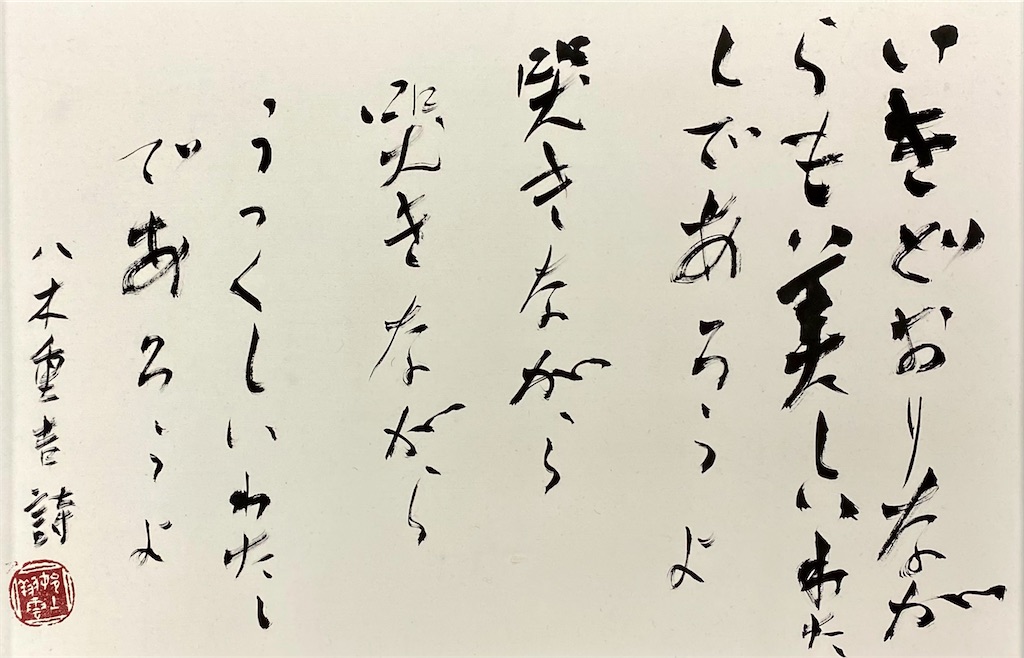 いきどおりなが
らも美しいわた
しであろうよ
哭きながら
哭きながら
うつくしいわたし
であろうよ
八木重吉詩
村上翔雲